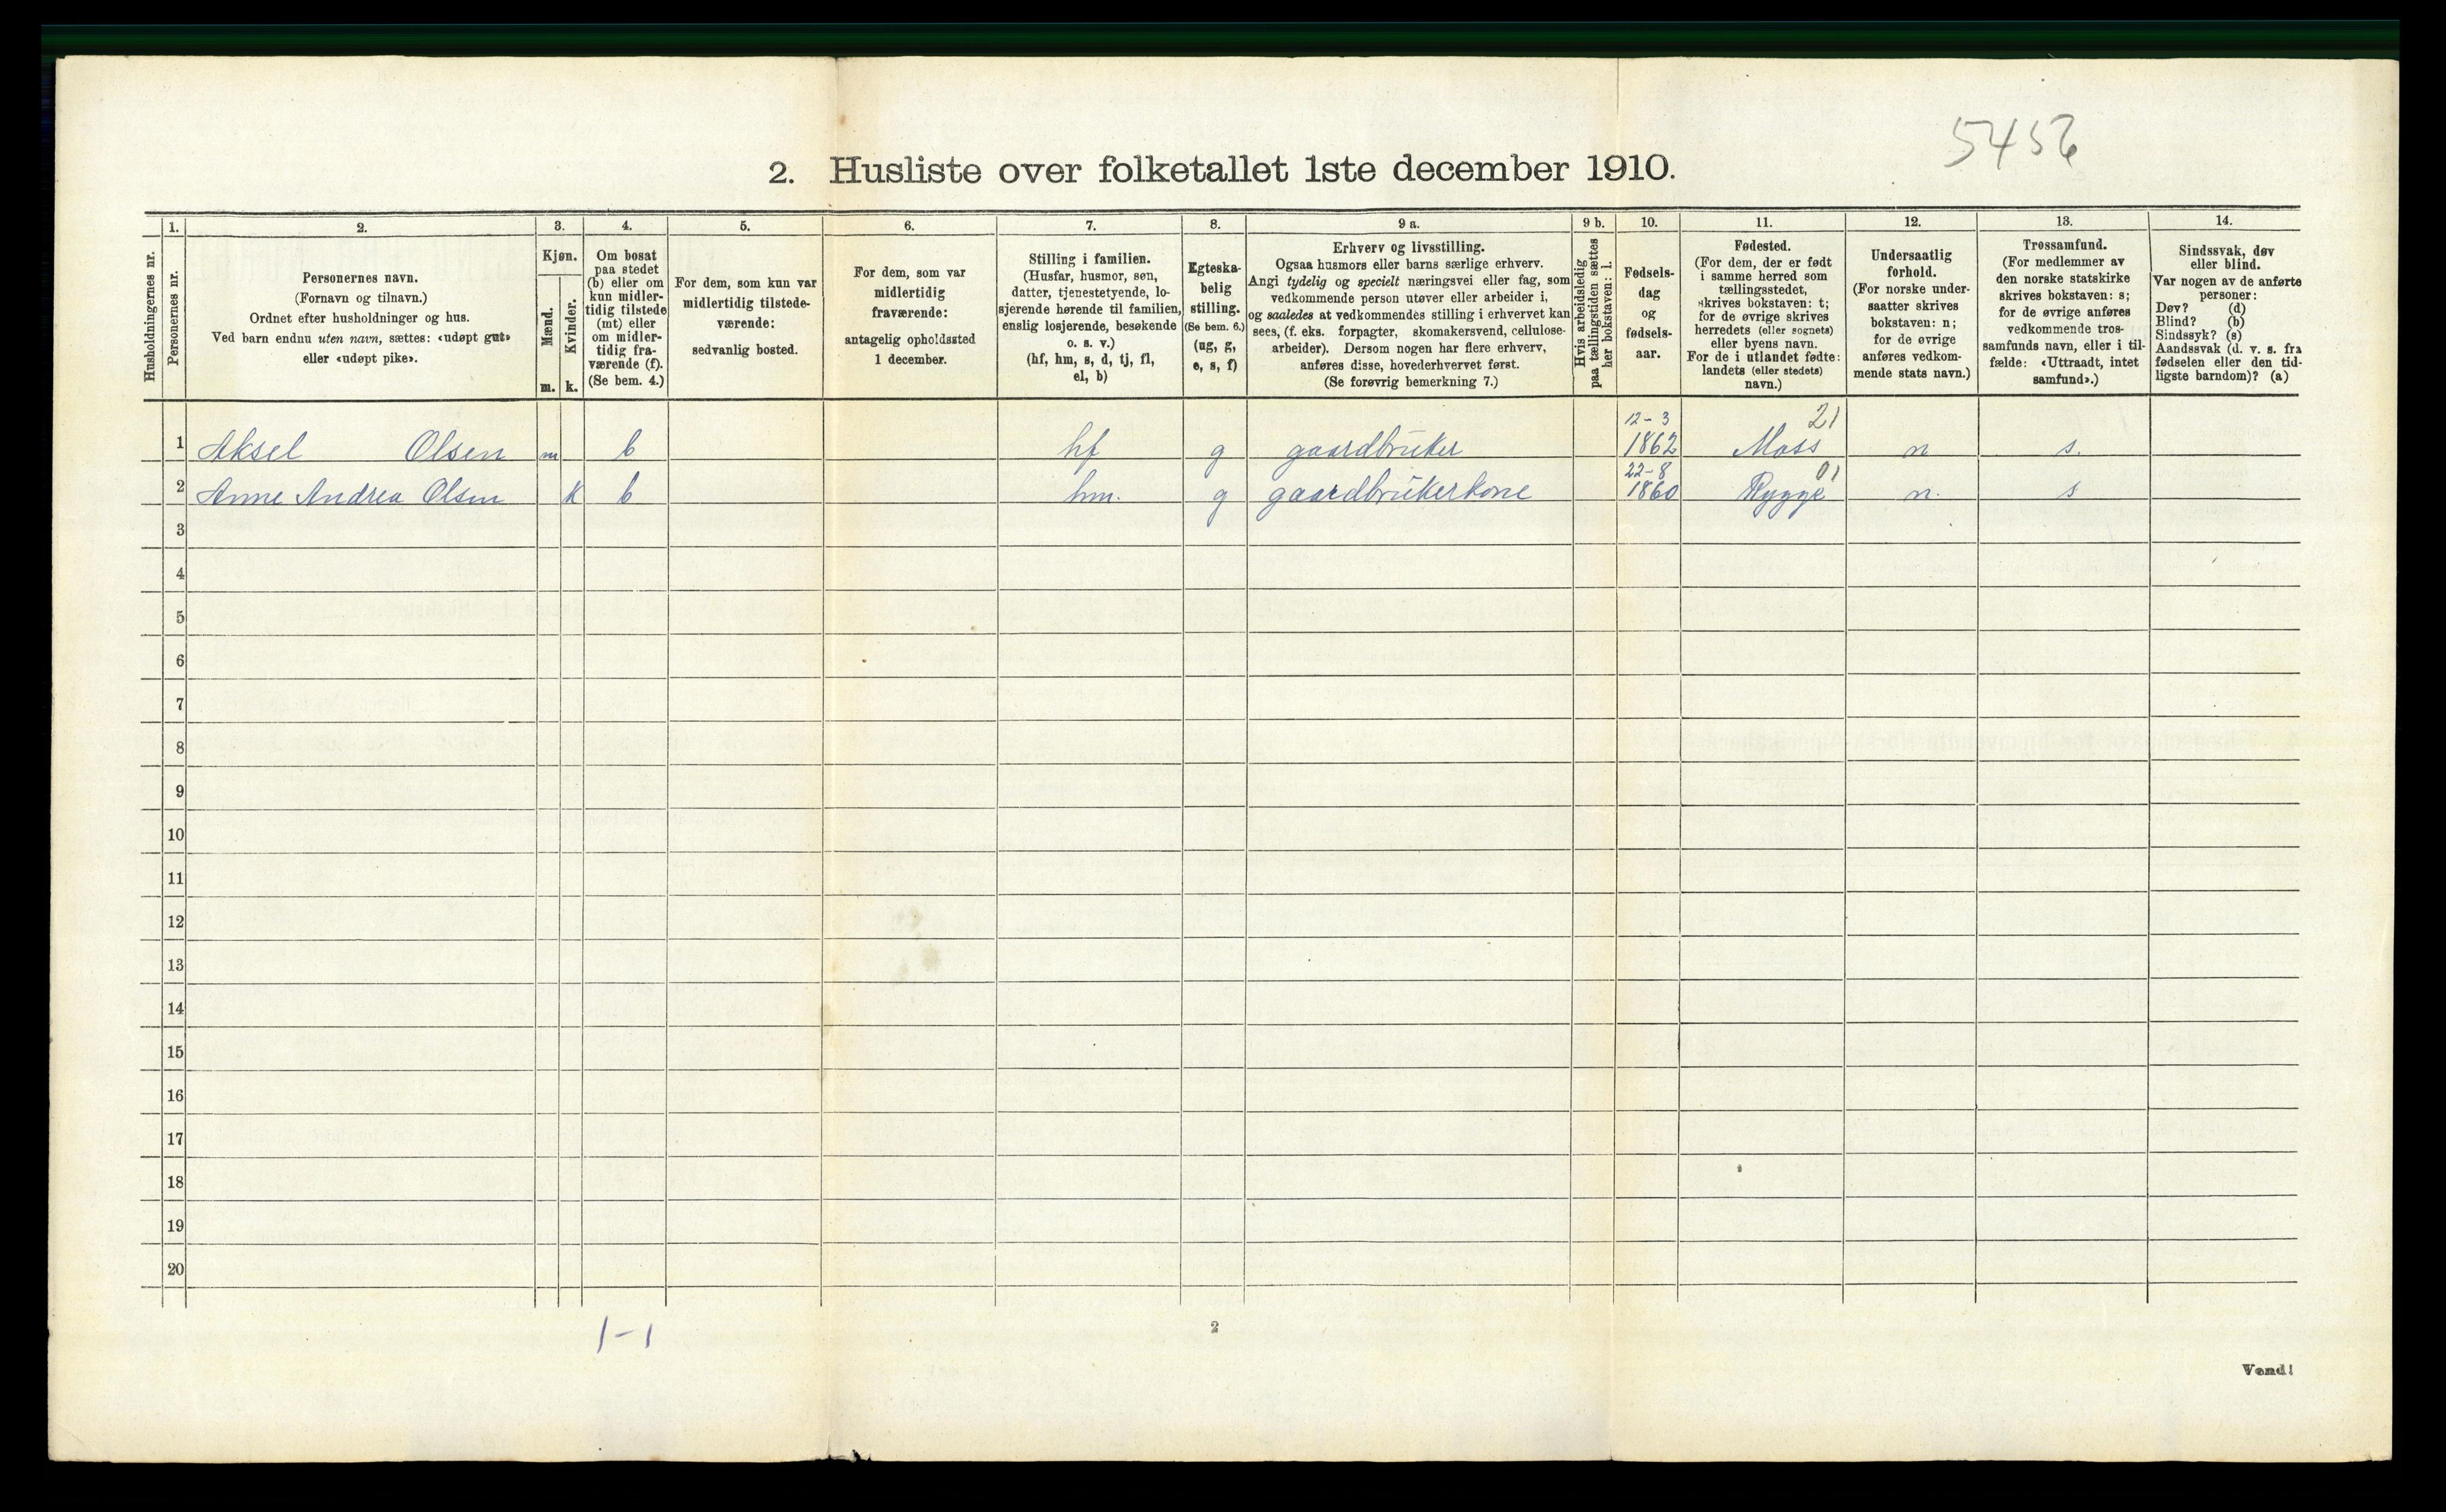 5456
2. Husliste over folketallet 1ste december 1910.
Husholdningernes nr.
1.
Personernes nr.
2.
Personernes navn.
(Fornavn og tilnavn.)
Ordnet efter husholdninger og hus.
Ved barn endnu uten navn, sættes: «udøpt gut»
eller «udøpt pike».
3.
Kjøn.
Mænd.
m.
Kvinder.
k.
4.
Om bosat
paa stedet
(b) eller om
kun midler-
tidig tilstede
(mt) eller
om midler-
tidig fra-
værende (f).
(Se bem. 4.)
5.
For dem, som kun var
midlertidig tilstede-
værende:
sedvanlig bosted.
6.
For dem, som var
midlertidig
fraværende:
antagelig opholdssted
1 december.
7.
Stilling i familien.
(Husfar, husmor, søn,
datter, tjenestetyende, lo-
sjerende hørende til familien,
enslig losjerende, besøkende
o. s. v.)
(hf, hm, s, d, tj, fl,
el, b)
8.
Egteska-
belig
stilling.
(Se bem. 6.)
(ug, g,
e, s, f)
9 a.
Erhverv og livsstilling.
Ogsaa husmors eller barns særlige erhverv.
Angi tydelig og specielt næringsvei eller fag, som
vedkommende person utøver eller arbeider i,
og saaledes at vedkommendes stilling i erhvervet kan
sees, (f. eks. forpagter, skomakersvend, cellulose-
arbeider). Dersom nogen har flere erhverv,
anføres disse, hovederhvervet først.
(Se forøvrig bemerkning 7.)
9 b.
Hvis arbeidsledig
paa tællingstiden sættes
her bokstaven: l.
10.
Fødsels-
dag
og
fødsels-
aar.
11.
Fødested.
(For dem, der er født
i samme herred som
tællingsstedet,
skrives bokstaven: t;
for de øvrige skrives
herredets (eller sognets)
eller byens navn.
For de i utlandet fødte:
landets (eller stedets)
navn.)
12.
Undersaatlig
forhold.
(For norske under-
saatter skrives
bokstaven: n;
for de øvrige
anføres vedkom-
mende stats navn.)
13.
Trossamfund.
(For medlemmer av
den norske statskirke
skrives bokstaven: s;
for de øvrige anføres
vedkommende tros-
samfunds navn, eller i til-
fælde: «Uttraadt, intet
samfund».)
14.
Sindssvak, døv
eller blind.
Var nogen av de anførte
personer:
Døv? (d)
Blind? (b)
Sindssyk? (s)
Aandssvak (d. v. s. fra
fødselen eller den tid-
ligste barndom)? (a)
12-3 21
1 Aksel Olsen m b hf g gaardbruker 1862 Moss n s.
22-8 01
2 Anne Andrea Olsen k b hm. g gaardbrukerkone 1860 Rygge n. s
3
4
5
6
7
8
9
10
11
12
13
14
15
16
17
18
19
20
1-1
2
Vend!